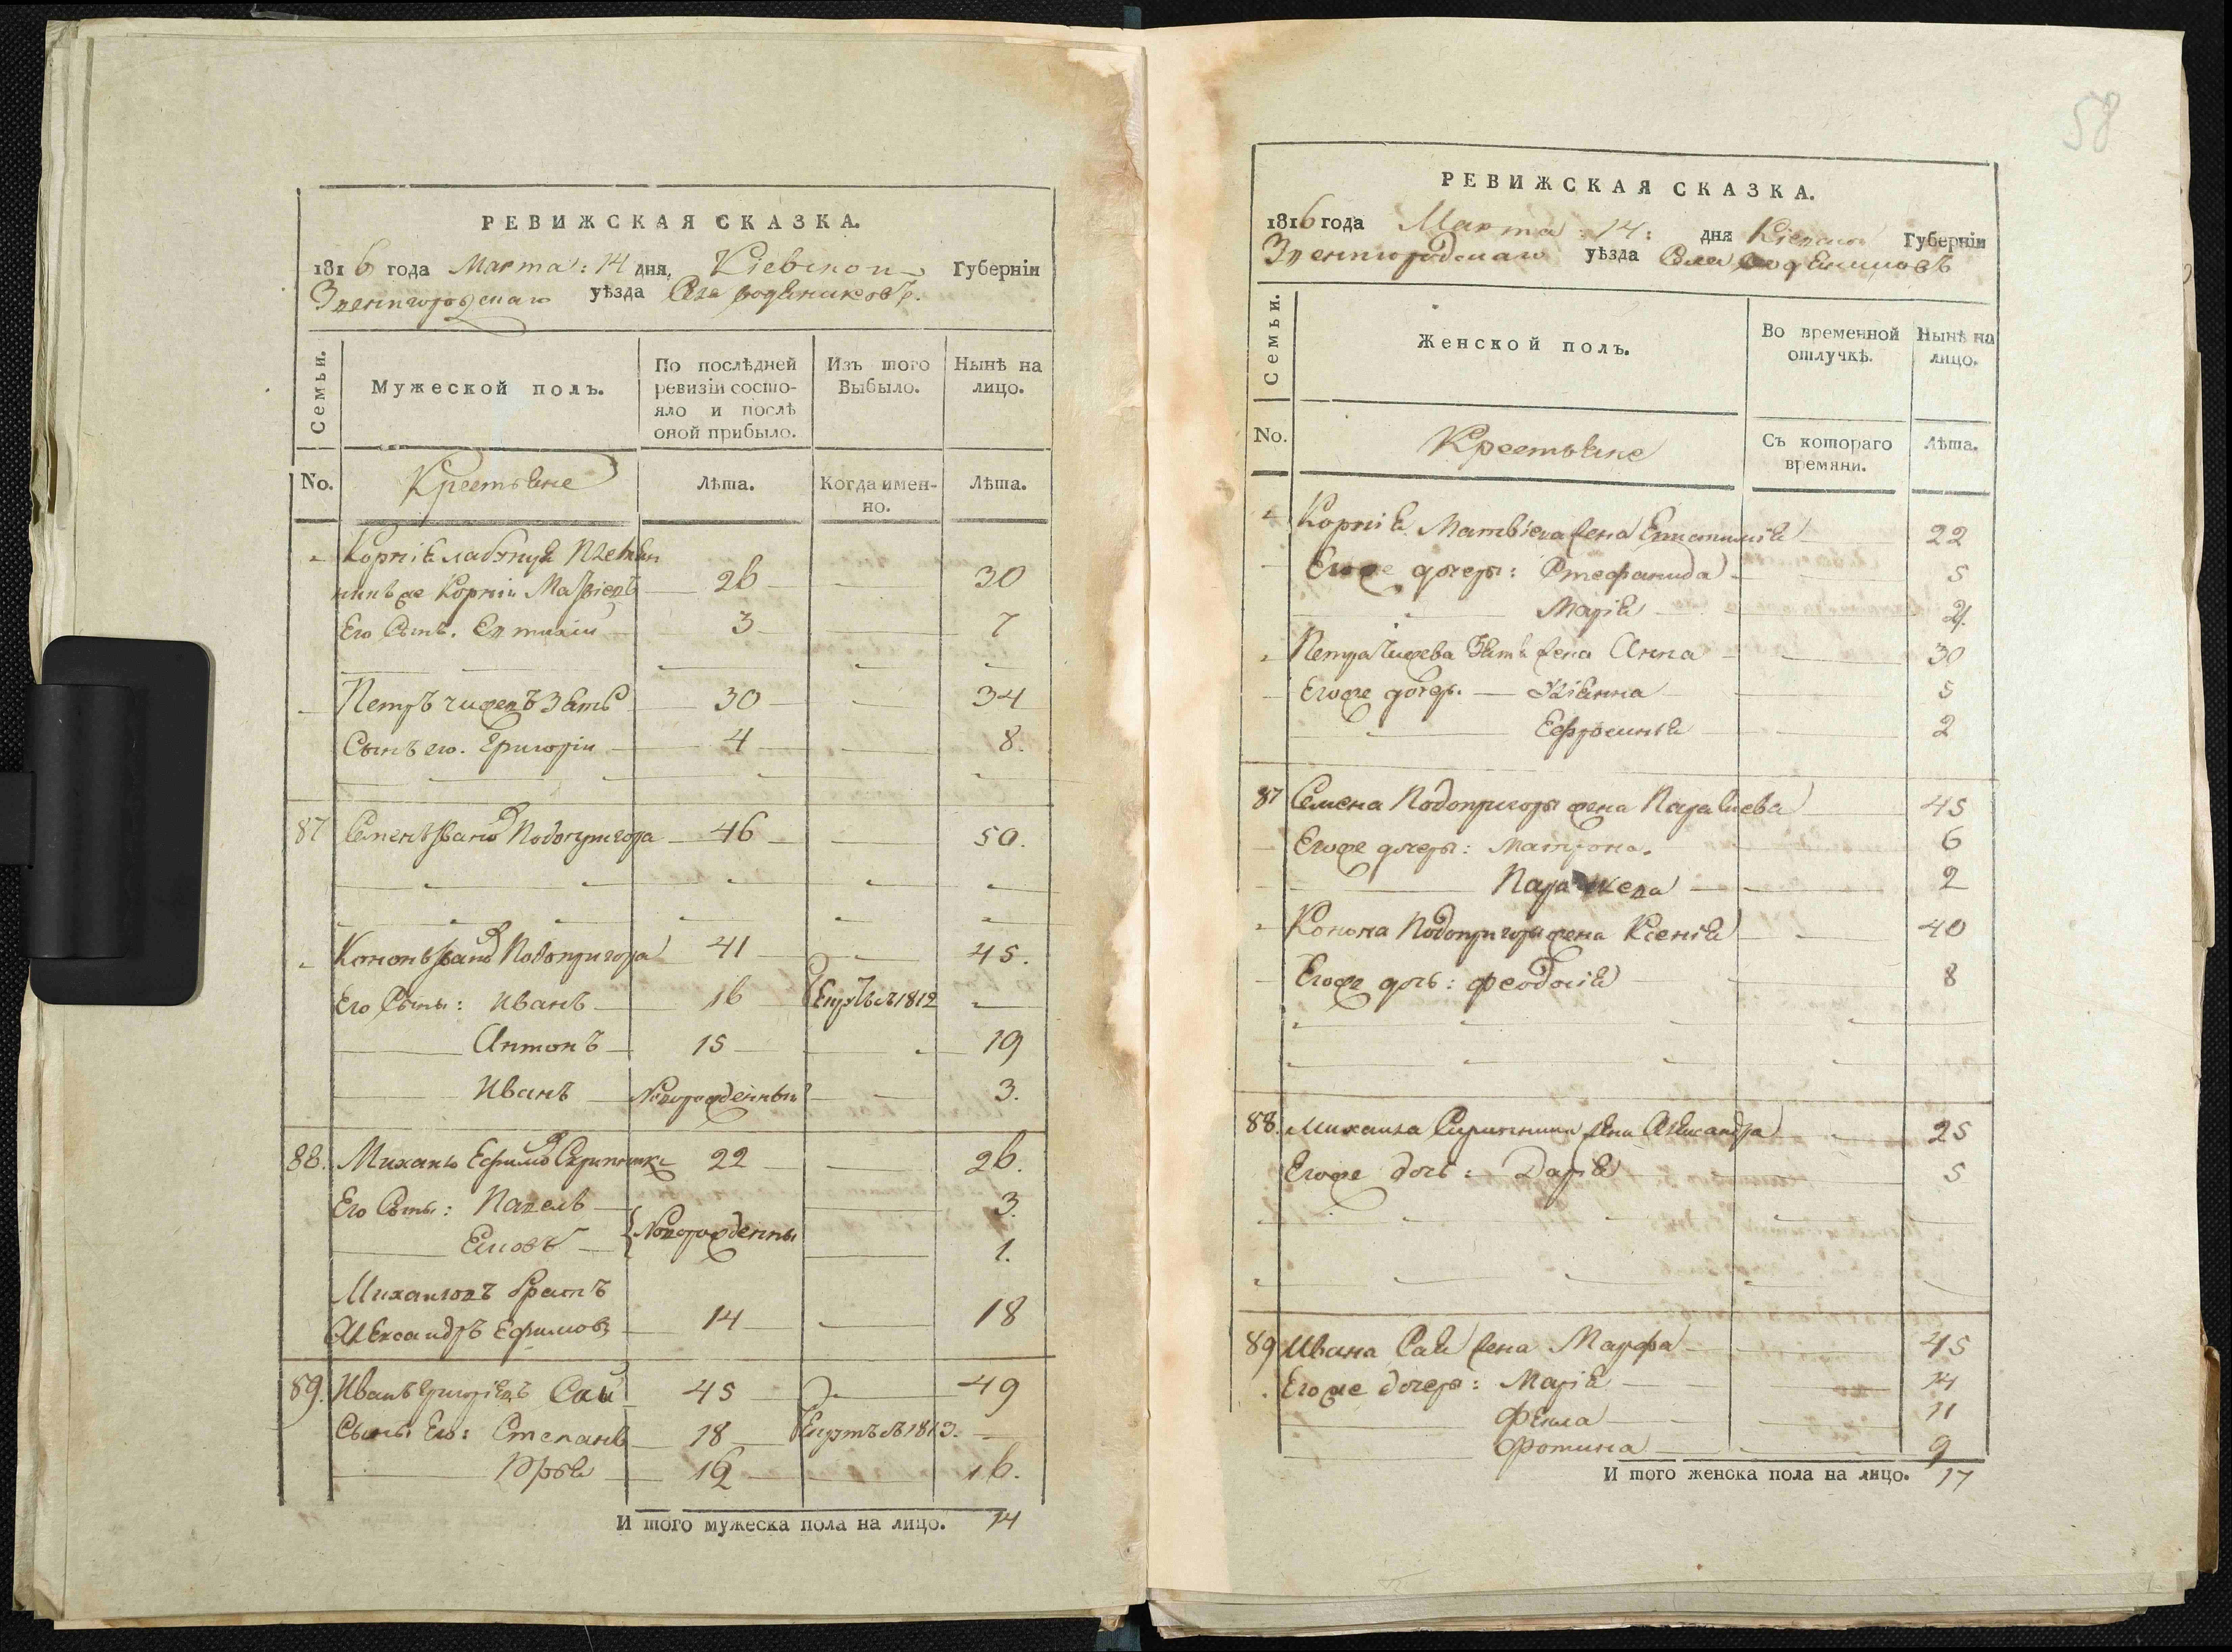 РЕВИЖСКАЯ СКАЗКА.
1816 года Марта: 14 дня, Кіевской Губерніи
Звенигородскаго уѣзда Села Водяниковъ.
Семьи.
Мужеской полъ.
По послѣдней ревизіи состояло и послѣ оной прибыло.
Изъ того Выбыло.
Нынѣ на лицо.
No.
Крестьяне
Лѣта.
Когда именно.
Лѣта.
Корній
Корній Матвіевъ 26 30
Его Сынъ. Евтихій 3 7
Петръ Зять 30 34
Сынъ его. Григорій 4 8.
87 Семенъ Ивановъ Подопригора 46 50.
Кононъ Ивановъ Подопригора 41 45.
Его Сыны: Иванъ 16 1812
Антонъ 15 19
Иванъ Новорожденный 3.
88. Михайло Ефимовъ Скрипникъ 22 26.
Его Сыны: Павелъ 3.
Новорожденны
Яковъ 1.
Михайловъ братъ
Александръ Ефимовъ 14 18
89. Иванъ Григоріевъ Сай 45 49
Сыны Его: Степанъ 18 1813.
Юрья 12 16.
И того мужеска пола на лицо. 14
58
РЕВИЖСКАЯ СКАЗКА.
1816 года Марта: 14: дня Кіевской Губерніи
Звенигородскаго уѣзда Села Водяниковъ
Семьи.
Женской полъ.
Во временной отлучкѣ.
Нынѣ на лицо.
No.
Крестьяне
Съ котораго времяни.
Лѣта.
Корнія Матвіева жена 22
Егоже дочери: Стефанида 5
Марія 2.
Петра Зятя жена Анна 30
Егоже дочери. Уліянна 5
Ефросинья 2
87 Семена Подопригоры жена Параскева 45
Егоже дочери: Матрона. 6
Параскева 2
Конона Подопригоры жена Ксенія 40
Егоже дочь: Феодосія 8
88. Михайла Скрипника жена Александра 25
Егоже дочь: Дарія 5
89 Ивана Сая жена Марфа 45
Егоже дочери: Марія 14
Фекла 11
Фотина 9
И того женска пола на лицо. 17